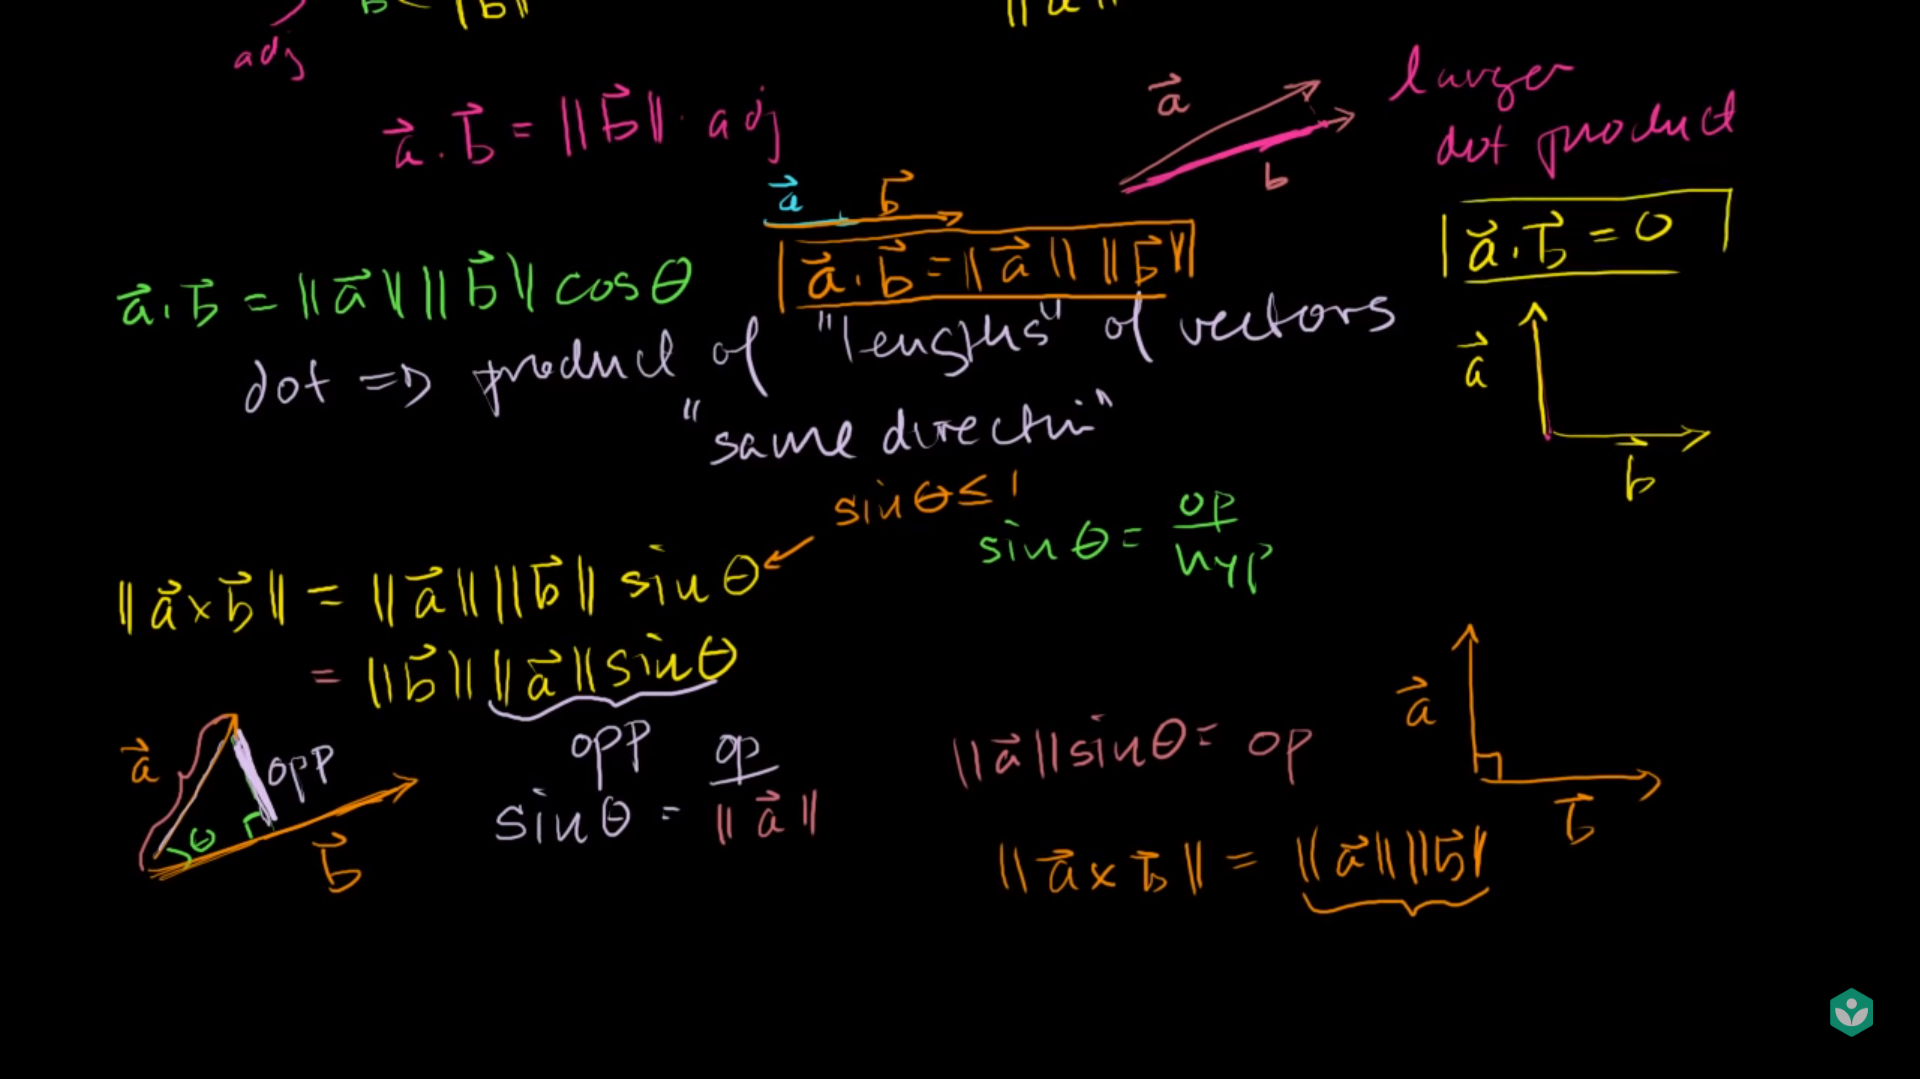 adj
b
‖b‖
‖a‖
a⃗ · b⃗ = ‖b⃗‖ · adj
a⃗
b
larger
dot product
a⃗ b⃗
a⃗ · b⃗ = ‖a⃗‖ ‖b⃗‖ cosθ
a⃗ · b⃗ = ‖a⃗‖ ‖b⃗‖
a⃗ · b⃗ = 0
dot ⇒ product of "lengths" of vectors
"same direction"
a⃗
b⃗
sinθ ≤ 1
sinθ = op/hyp
‖a⃗ × b⃗‖ = ‖a⃗‖ ‖b⃗‖ sinθ
= ‖b⃗‖ ‖a⃗‖ sinθ
a⃗
opp
θ
b⃗
opp
sinθ = op/‖a⃗‖
‖a⃗‖ sinθ = op
a⃗
b⃗
‖a⃗ × b⃗‖ = ‖a⃗‖ ‖b⃗‖